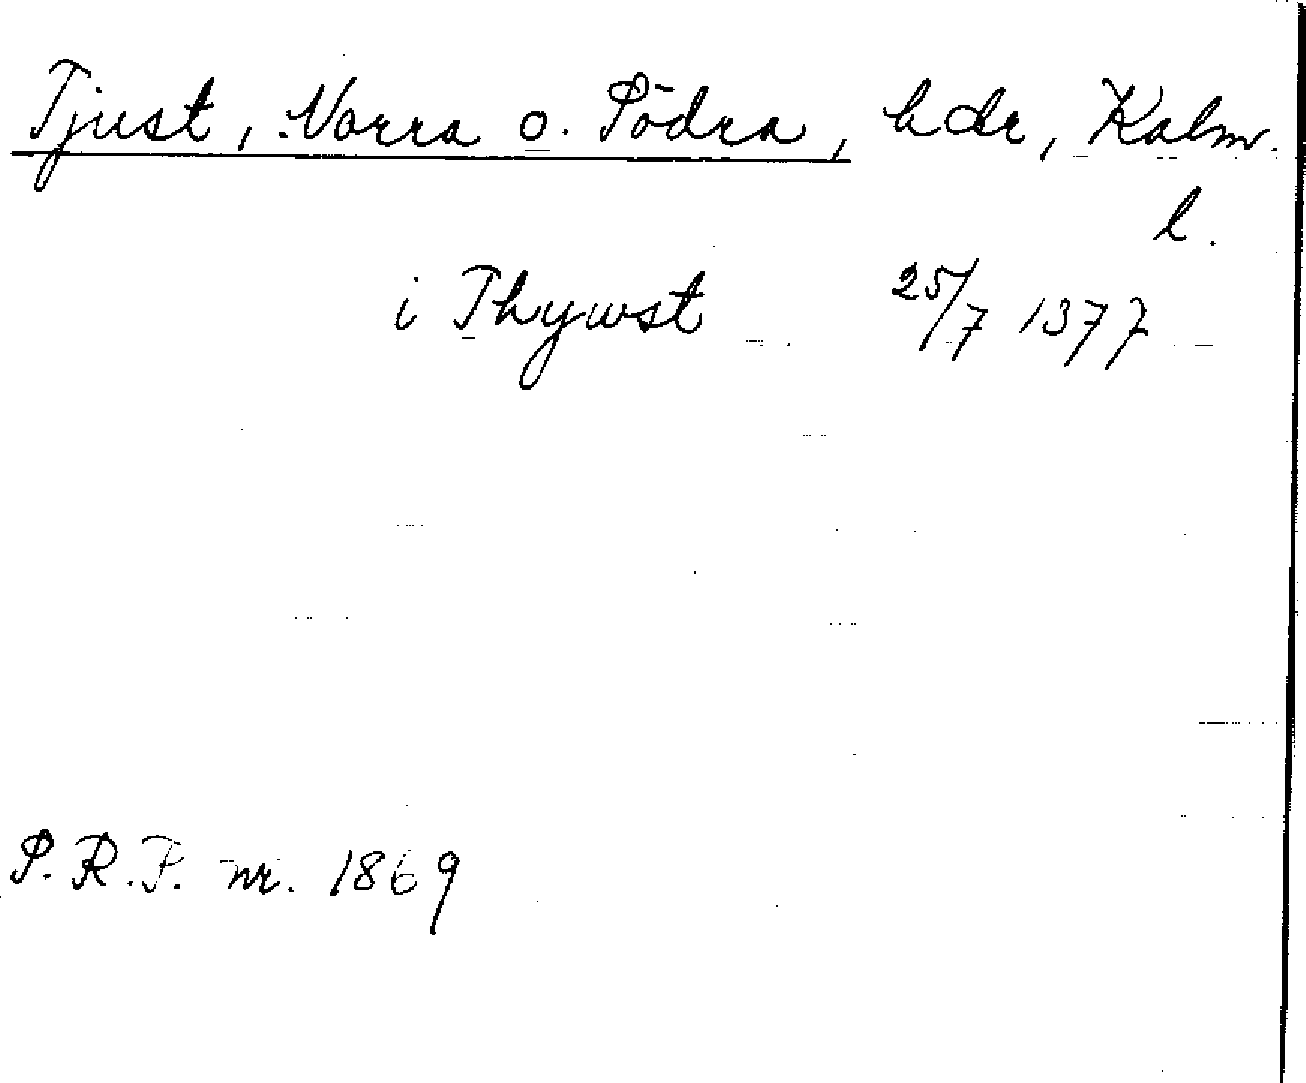 Tjust, Norra o. Södra, hdr, Kalm.
l.
i Thywst 25/7 1377
S.R.P. nr. 1869